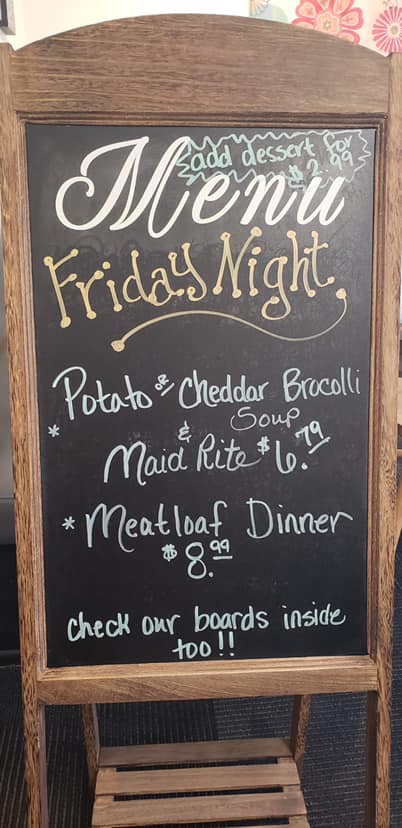 add dessert for
$2.99
Menu
Friday Night
Potato or Cheddar Brocolli
Soup
* &
Maid Rite $6.79
* Meatloaf Dinner
$8.99
check our boards inside
too!!